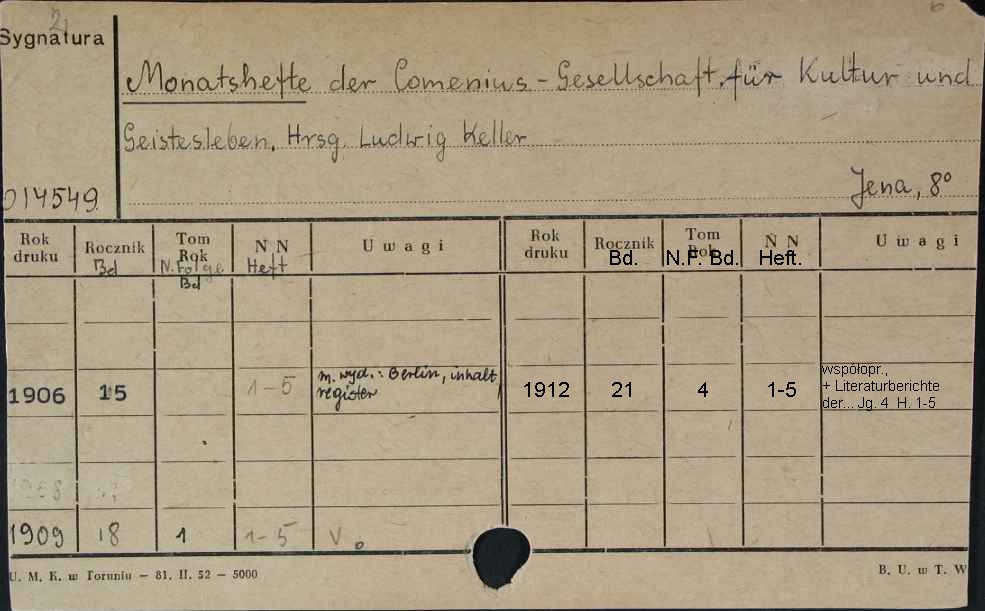 2
6
Sygnatura
Monatshefte der Comenius-Gesellschaft. für Kultur und
Geistesleben. Hrsg. Ludwig Keller
014549
Jena, 8°
Rok druku Rocznik Bd Tom Rok N. Folge Bd N N Heft Uwagi Rok druku Rocznik Bd. Tom Rok N.F. Bd. N N Heft. Uwagi
1906 15 1-5 m. wyd.: Berlin, inhalt register 1912 21 4 1-5 współopr., + Literaturberichte der... Jg. 4 H. 1-5
1909 18 1 1-5 V.
U. M. K. w Toruniu – 81. II. 52 – 5000
B. U. w T. W